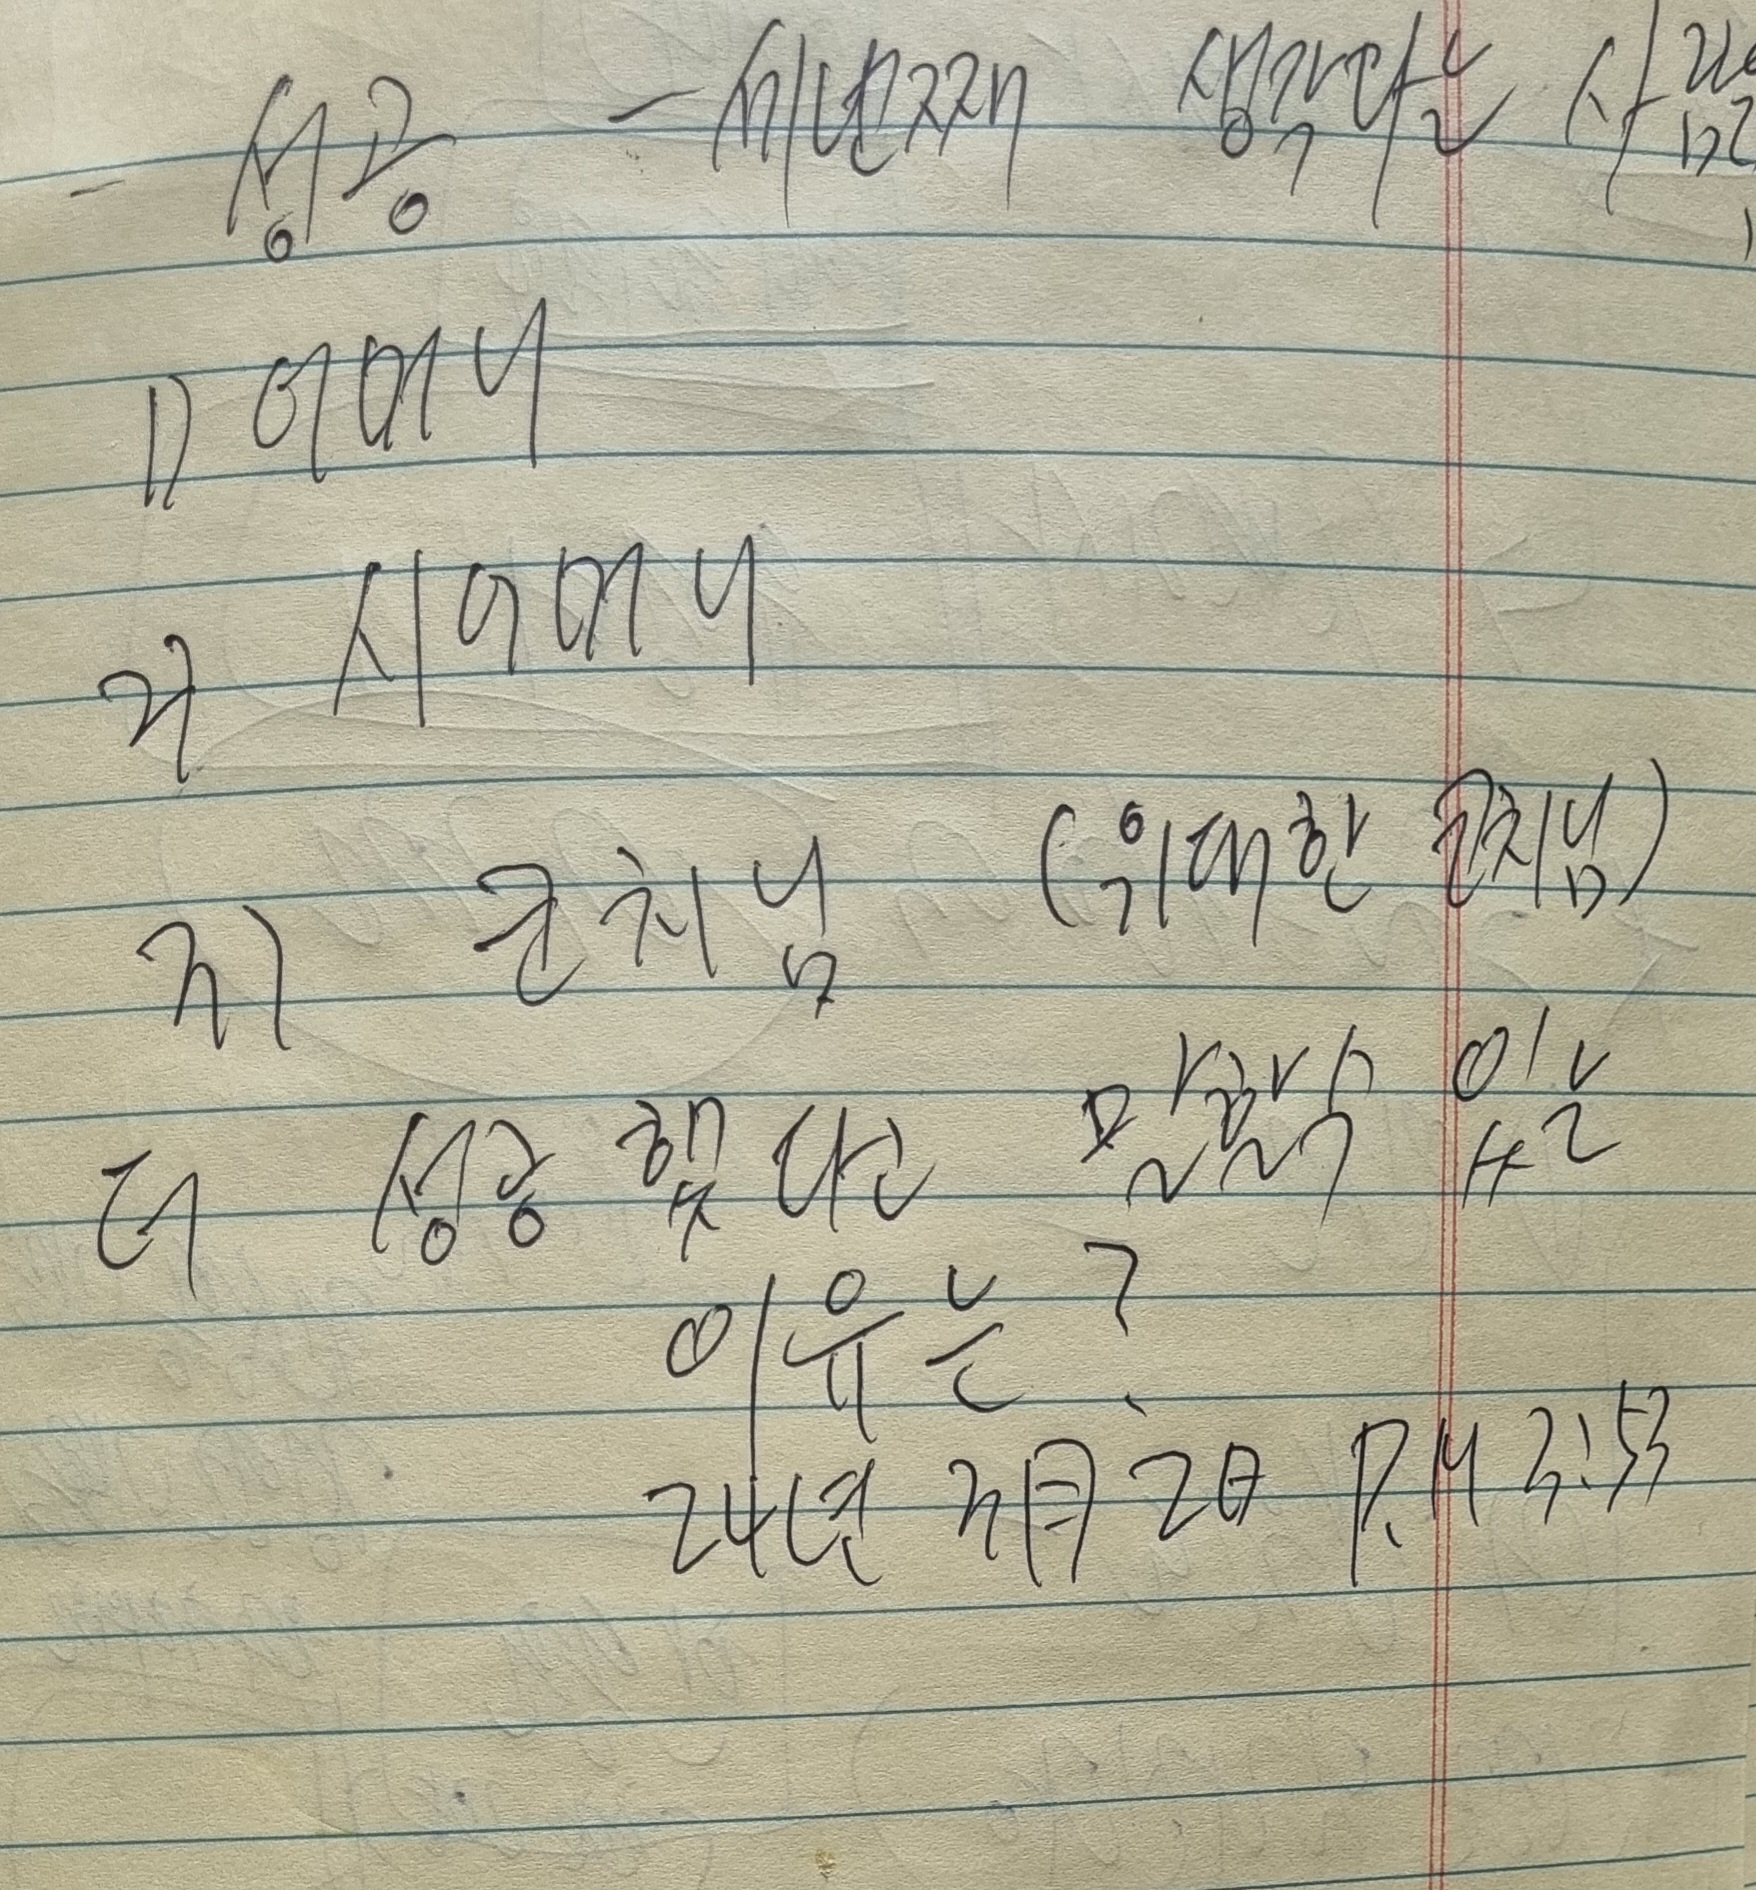 - 성공 - 세번째 생각나는 사람
1) 어머니
2) 시어머니
3) 코치님 (위대한 코치님)
더 성공했다고 말할수 있는
이유는?
24년 3月 20 P.M 3:53